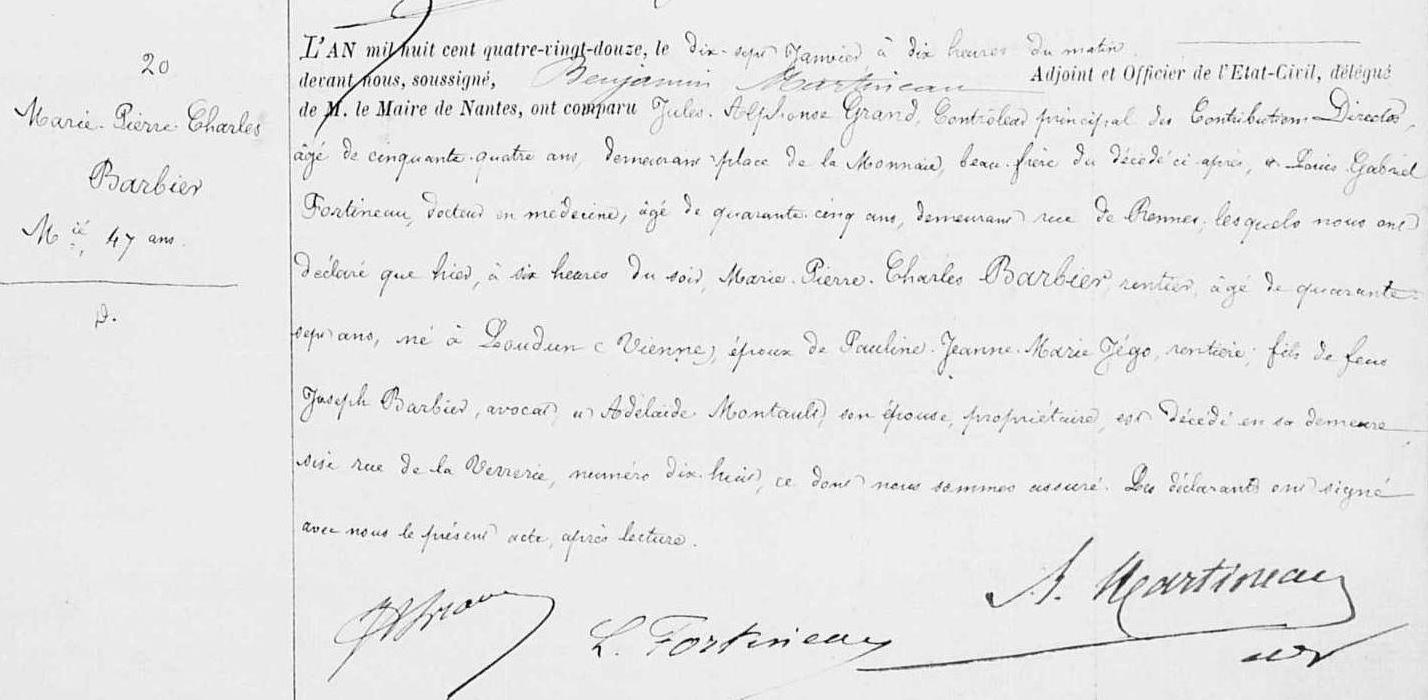 20
Marie-Pierre-Charles
Barbier
M.ié, 47 ans.
D.
L'AN mil huit cent quatre-vingt-douze, le dix-sept Janvier, à dix heures du matin
devant nous, soussigné, Benjamin Martineau Adjoint et Officier de l'Etat-Civil, délégué
de M. le Maire de Nantes, ont comparu Jules-Alphonse Grand, Contrôleur principal des Contributions Directes,
âgé de cinquante-quatre ans, demeurant place de la Monnaie, beau-frère du décédé ci-après, et Louis-Gabriel
Fortineau, docteur en médecine, âgé de quarante-cinq ans, demeurant rue de Rennes; lesquels nous ont
déclaré que hier, à six heures du soir, Marie-Pierre-Charles Barbier, rentier, âgé de quarante-
sept ans, né à Loudun (Vienne), époux de Pauline-Jeanne-Marie Jégo, rentière; fils de feus
Joseph Barbier, avocat, et Adélaïde Montault, son épouse, propriétaire, est décédé en sa demeure
sise rue de la Verrerie, numéro dix-huit, ce dont nous sommes assuré. Les déclarants ont signé
avec nous le présent acte, après lecture.
L. Fortineau
B. Martineau